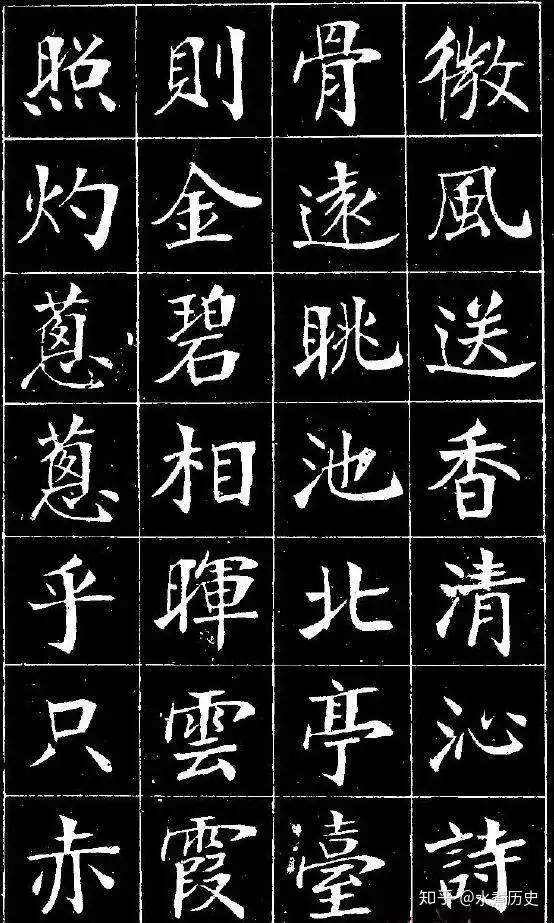 微風送香清沁詩
骨遠眺池北亭臺
則金碧相暉雲霞
照灼蔥蔥乎只赤
知乎 @水煮历史